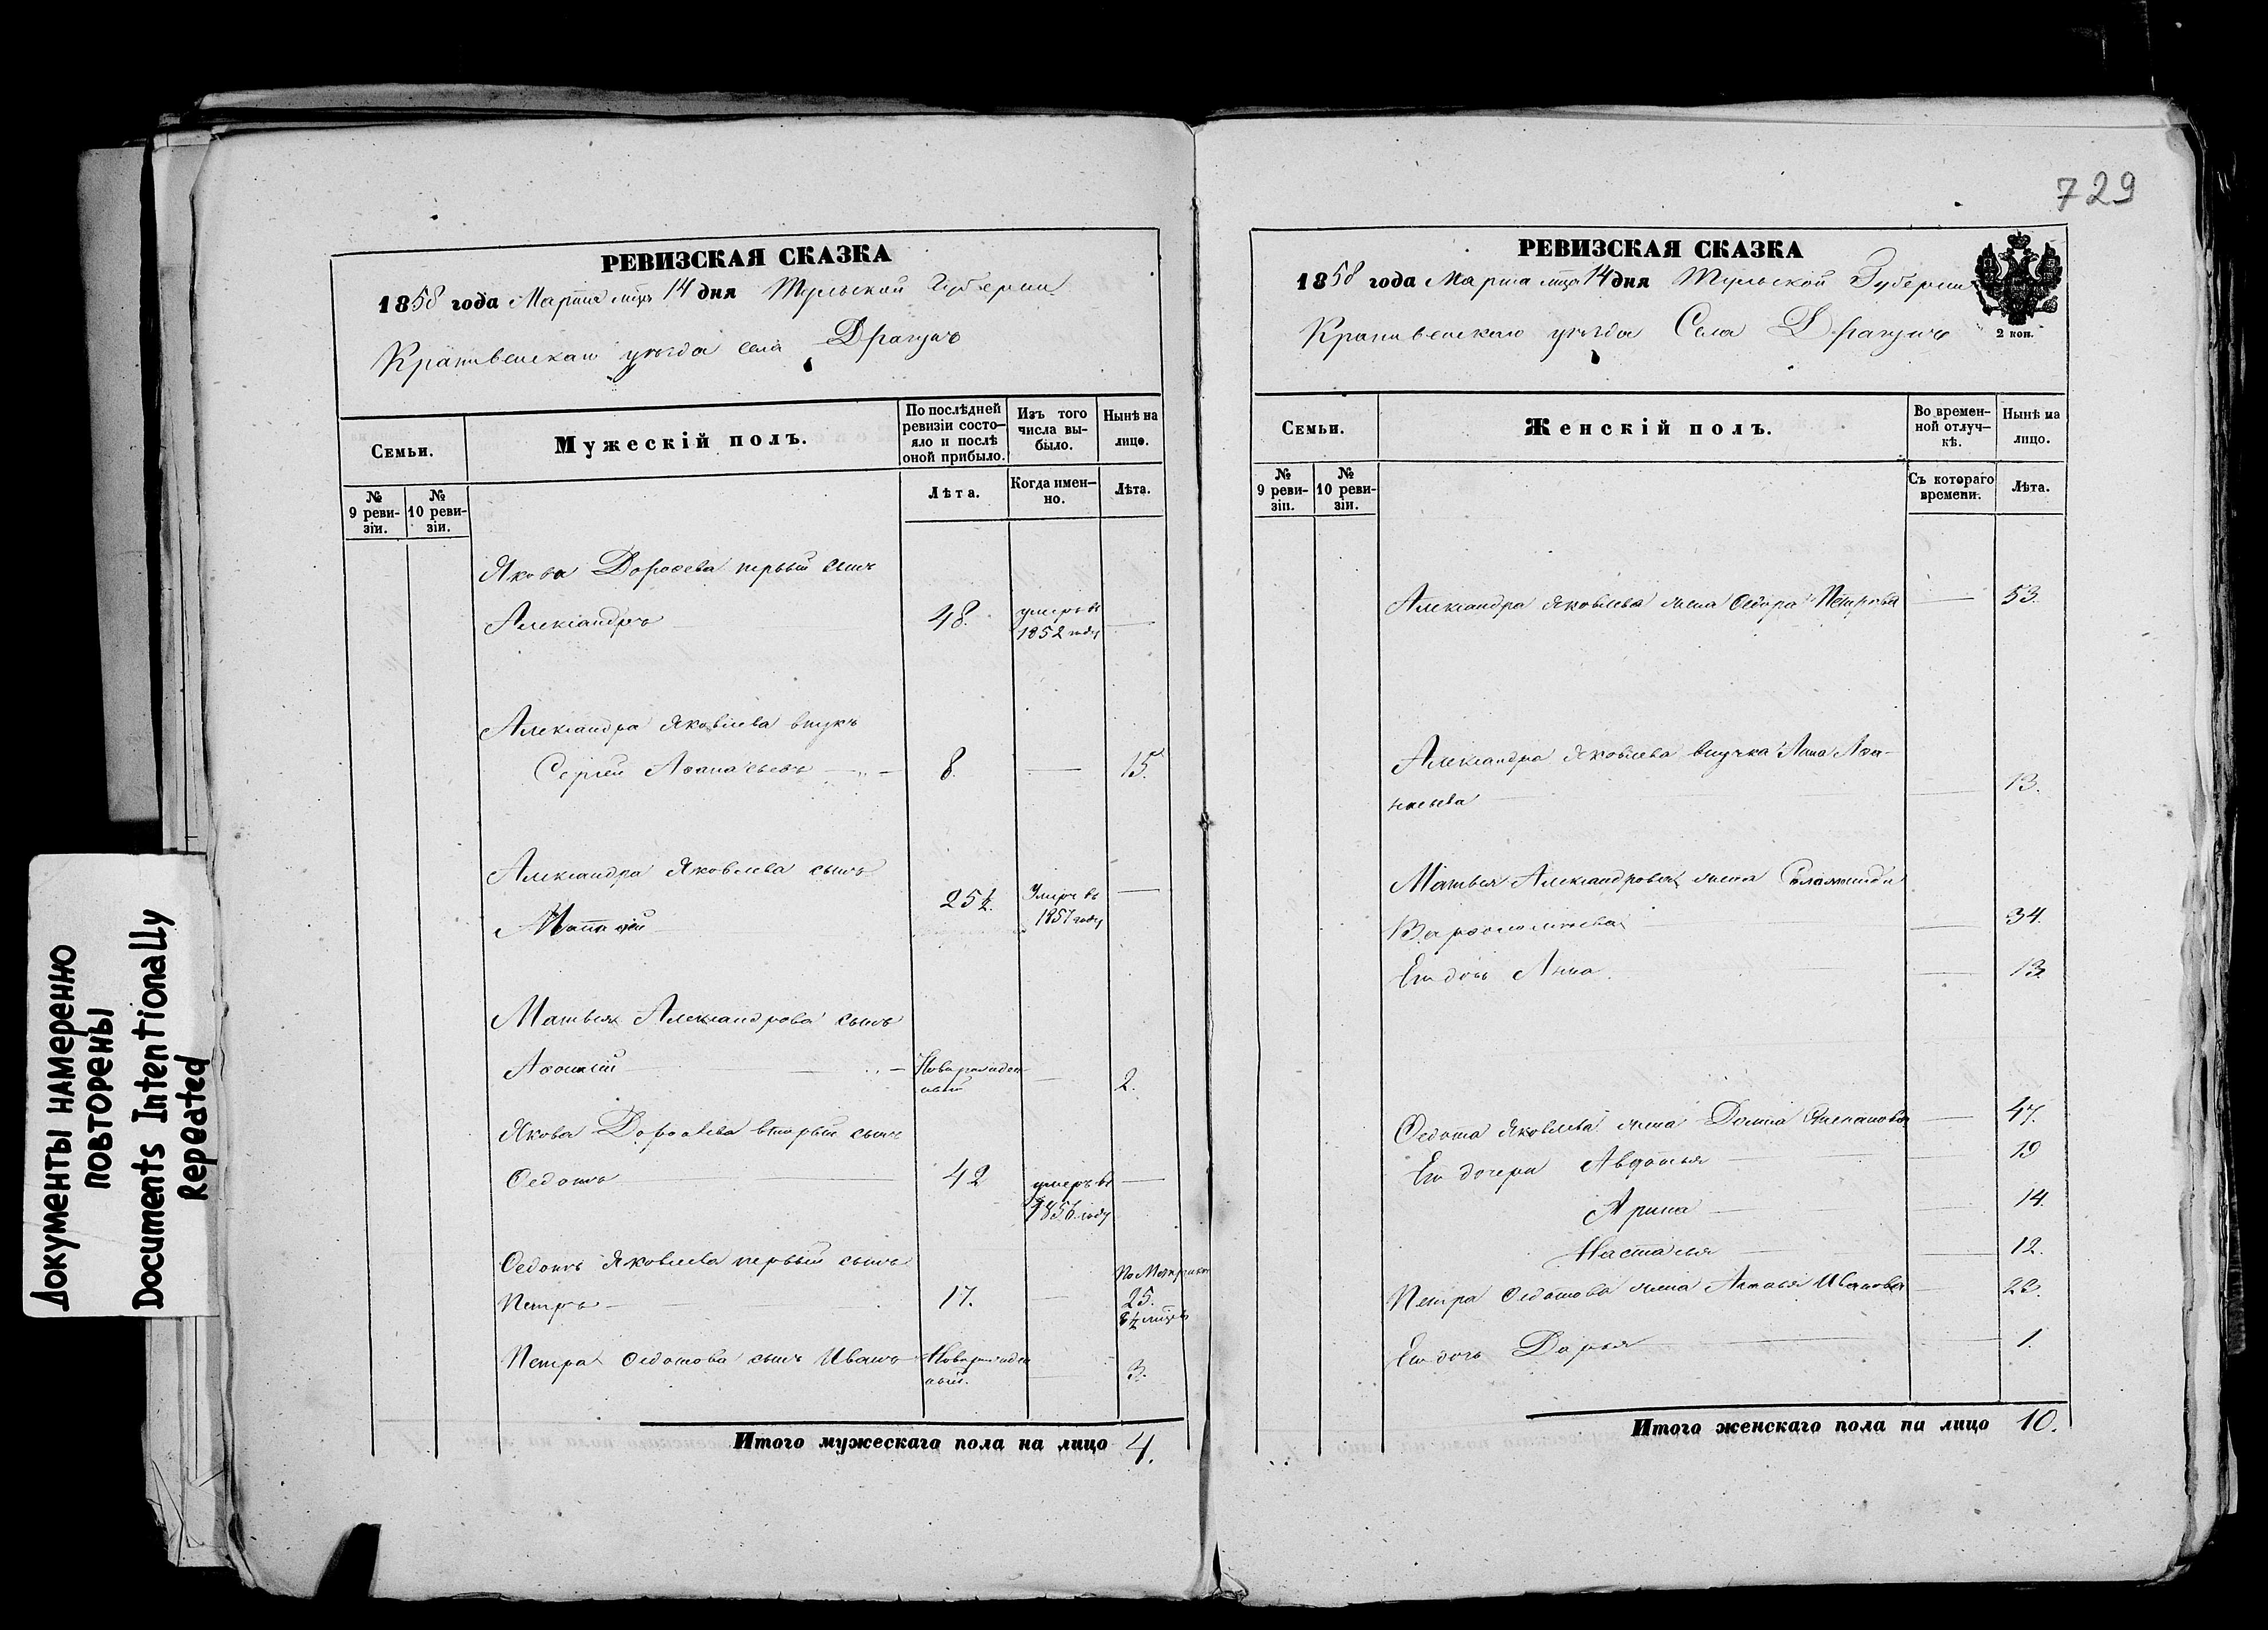 Документы намеренно
повторены
Documents Intentionally
Repeated
РЕВИЗСКАЯ СКАЗКА
1858 года Марта мца 14 дня Тульской Губернии
Крапивенскаго уѣзда села Драгунъ
Семьи.
Мужескій полъ.
По послѣдней
ревизіи состо-
яло и послѣ
оной прибыло.
Изъ того
числа вы-
было.
Нынѣ на
лицо.
№
9 реви-
зіи.
№
10 реви-
зіи.
Лѣта.
Когда имен-
но.
Лѣта.
Якова Дорофеева первый сынъ
Александръ 48. умеръ въ
1852 году
Александра Яковлева внукъ
Сергей Афанасьевъ 8. 15.
Александра Яковлева сынъ
Матвей 25½. Умеръ въ
1857 году
Матвея Александрова сынъ
Афонасій Новорожден
ный 2.
Якова Дорофеева вторый сынъ
Федотъ 42 умеръ въ
1856 году
Федотъ Яковлева первый сынъ
Петръ 17. По Метрикѣ
25.
8½ мцъ
Петра Федотова сынъ Иванъ Новорожден
ный. 3.
Итого мужескаго пола на лицо 4.
729
РЕВИЗСКАЯ СКАЗКА
1858 года Марта мца 14 дня Тульской Губернии
Крапивенскаго уѣзда Села Драгунъ
2 коп.
Семьи.
Женскій полъ.
Во времен-
ной отлуч-
кѣ.
Нынѣ на
лицо.
№
9 реви-
зіи.
№
10 реви-
зіи.
Съ котораго
времени.
Лѣта.
Александра Яковлева жена Федора Петрова 53.
Александра Яковлева внучка Анна Афа-
насьева 13.
Матвея Александрова жена
Варфоломеева 34.
Его дочь Анна. 13.
Федота Яковлева жена Домна Степанова 47.
Его дочери Авдотья 19
Арина 14.
Настасья 12.
Петра Федотова жена Иванова 22.
Его дочь Дарья 1.
Итого женскаго пола на лицо 10.